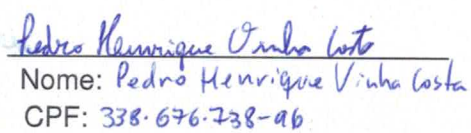 Pedro Henrique Vinha Costa
Nome: Pedro Henrique Vinha Costa
CPF: 338.676.738-96